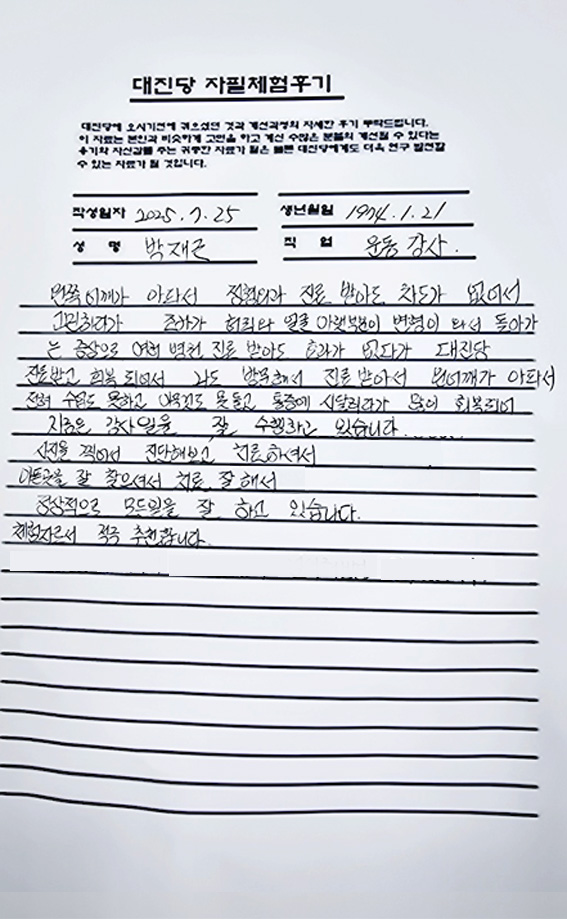 대진당 자필체험후기
대진당에 오시기전에 겪으셨던 것과 개선과정의 자세한 후기 부탁드립니다.
이 자료는 본인과 비슷하게 고민을 하고 계신 수많은 분들의 개선될 수 있다는
용기와 자신감을 주는 귀중한 자료가 됨은 물론 대진당에게도 더욱 연구 발전할
수 있는 자료가 될 것입니다.
작성일자 2025.7.25 생년월일 1974.1.21
성 명 박재근 직 업 운동 강사.
왼쪽어깨가 아파서 정형외과 진료 받아도 차도가 없어서
고민하다가 조카가 허리와 얼굴 아랫 변형이 와서 돌아가
는 증상으로 여러 병원 진료 받아도 효과가 없다가 대진당
진료받고 회복되어서 나도 방문해서 진료받아서 왼어깨가 아파서
전혀 수업도 못하고 아무것도 못들고 통증에 시달리다가 많이 회복되어
지금은 강사일을 잘 수행하고 있습니다
사진을 찍어서 진단해보고 치료하셔서
아픈곳을 잘 찾으셔서 치료 잘해서
정상적으로 모든일을 잘 하고 있습니다.
체험자로서 적극 추천합니다.